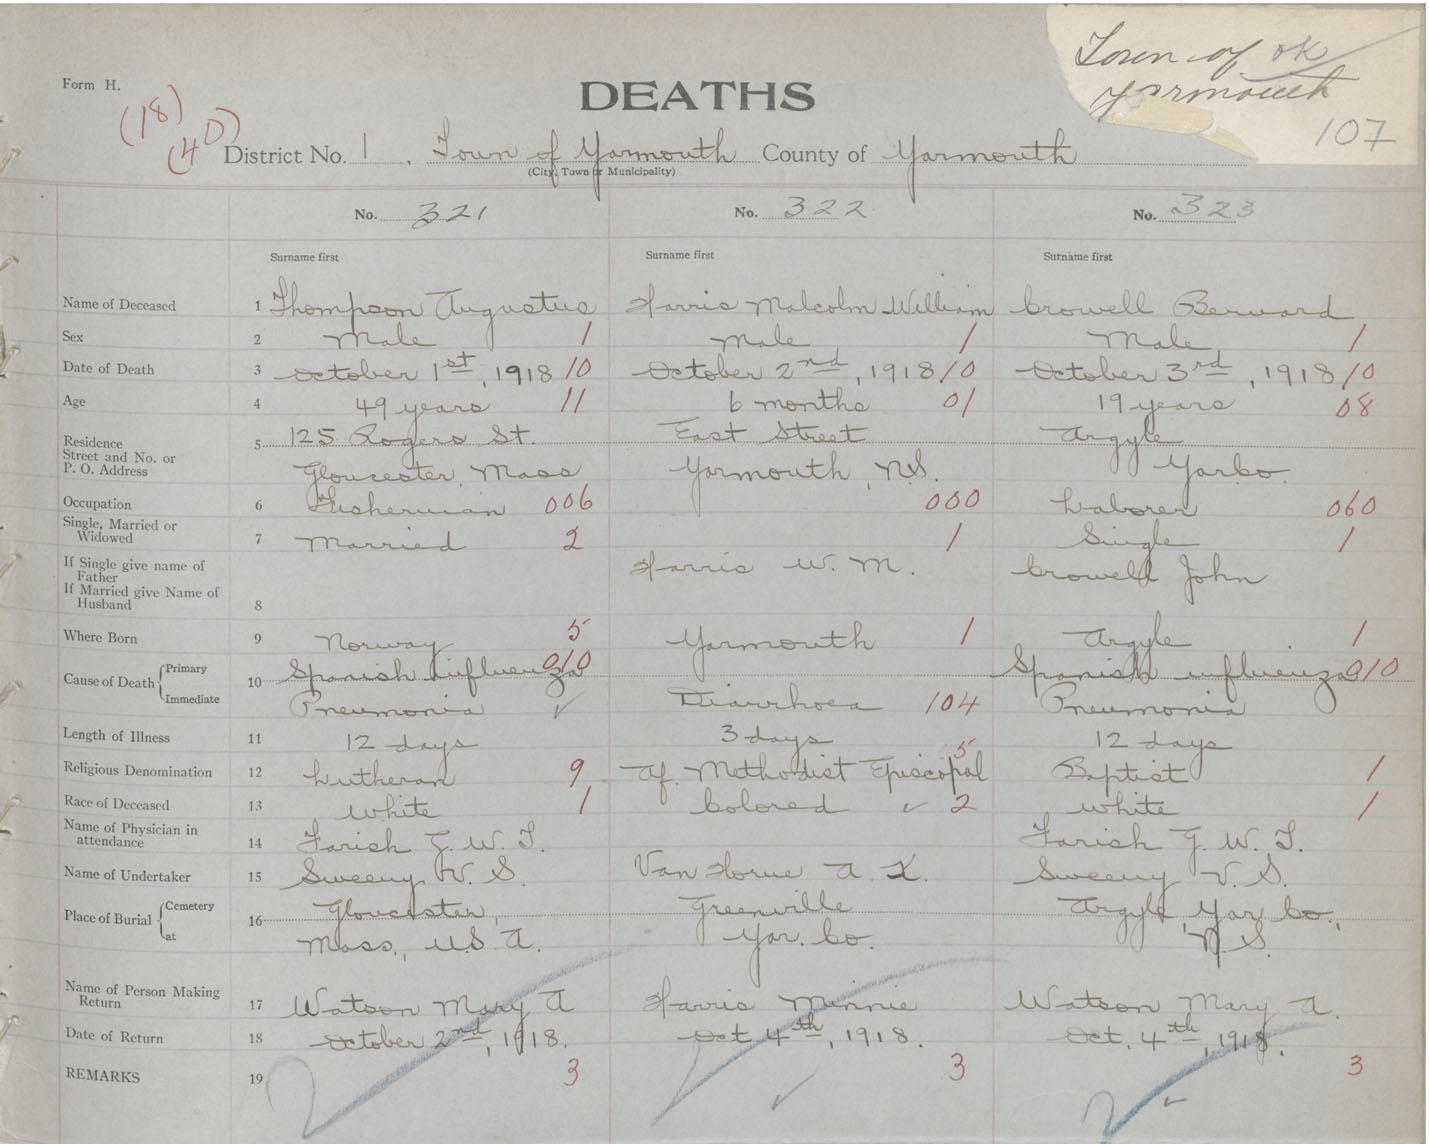 Town of ok
Yarmouth
107
Form H.
(18)
(40)
DEATHS
District No. 1, Town of Yarmouth County of Yarmouth
(City, Town or Municipality)
No. 321 No. 322 No. 323
Surname first Surname first Surname first
Name of Deceased 1 Thompson Augustus Harris Malcolm William Crowell Bernard
Sex 2 Male 1 Male 1 Male 1
Date of Death 3 October 1st, 1918 10 October 2nd, 1918 10 October 3rd, 1918 10
Age 4 49 years 11 6 months 01 19 years 08
Residence 5 125 Rogers St. East Street Argyle
Street and No. or
P. O. Address Gloucester, Mass Yarmouth, N.S. Yar. Co.
Occupation 6 Fisherman 006 000 Laborer 060
Single, Married or
Widowed 7 Married 2 1 Single 1
If Single give name of
Father Harris W. M. Crowell John
If Married give Name of
Husband 8
Where Born 9 Norway 5 Yarmouth 1 Argyle 1
Cause of Death Primary 10 Spanish influenza 010 Spanish influenza 010
Immediate Pneumonia ✓ Diarrhoea 104 Pneumonia
Length of Illness 11 12 days 3 days 12 days
Religious Denomination 12 Lutheran 9 Af. Methodist Episcopal 5 Baptist 1
Race of Deceased 13 White 1 Colored ✓ 2 White 1
Name of Physician in
attendance 14 Farish G. W. T. Farish G. W. T.
Name of Undertaker 15 Sweeny V. S. Van Horne A. K. Sweeny V. S.
Place of Burial Cemetery 16 Gloucester, Greenville Argyle, Yar. Co.,
at Mass., U.S.A. Yar. Co. N.S.
Name of Person Making
Return 17 Watson Mary A Harris Minnie Watson Mary A.
Date of Return 18 October 2nd, 1918. Oct 4th, 1918. Oct. 4th, 1918.
REMARKS 19 3 3 3
✓ ✓